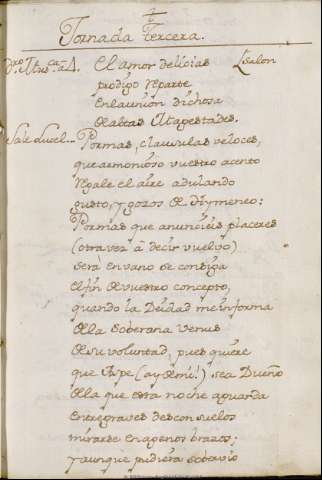 Jornada tercera.
El amor delicias Salon
prodigo reparte
En la union dichosa
de altas Magestades.
Sale Por mas, clausulas veloces,
que armonioso vuestro acento
regale el aire adulando
gusto, y gozos de Hymeneo:
Por mas que anuncieis placeres
(otra vez à decir vuelvo)
será en vano se consiga
el fin de vuestro concepto,
quando la Deidad me informa
de la soberana Venus
de su voluntad, pues quiere
que (ay de mi!) sea Dueño
de la que esta noche aguarda
entre graves desconsuelos
mirarse en agenos brazos;
y aunque pudiera